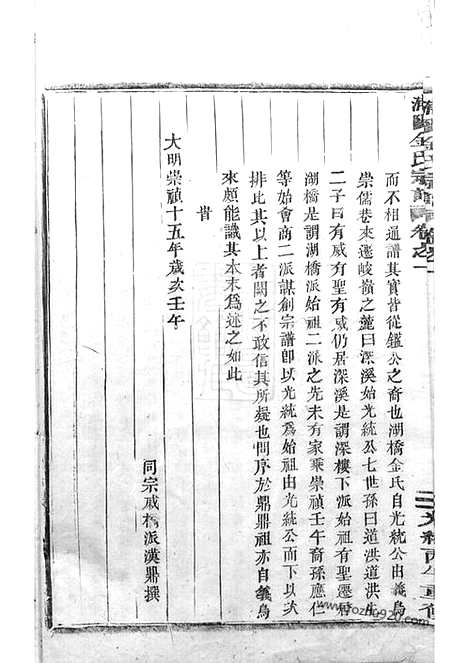 而不相通譜其實皆從鑑公之裔也湖橋金氏自光統公由義烏
崇儒巷來遷峻嶺之麓曰深溪始光統公七世孫曰道洪道洪生
二子曰有威有聖有威仍居深溪是謂深樓下派始祖有聖遷居
湖橋是謂湖橋派始祖二派之先未有家乘崇禎壬午裔孫應仁
等始會商二派謀創宗譜即以光統為始祖由光統公而下以次
排比其以上者闕之不敢信其所疑也問序於鼎鼎祖亦自義烏
來頗能識其本末為述之如此
旹
大明崇禎十五年歲亥壬午
同宗戚橋派漢鼎撰
金氏宗譜
卷之一
www.fozhu920.com